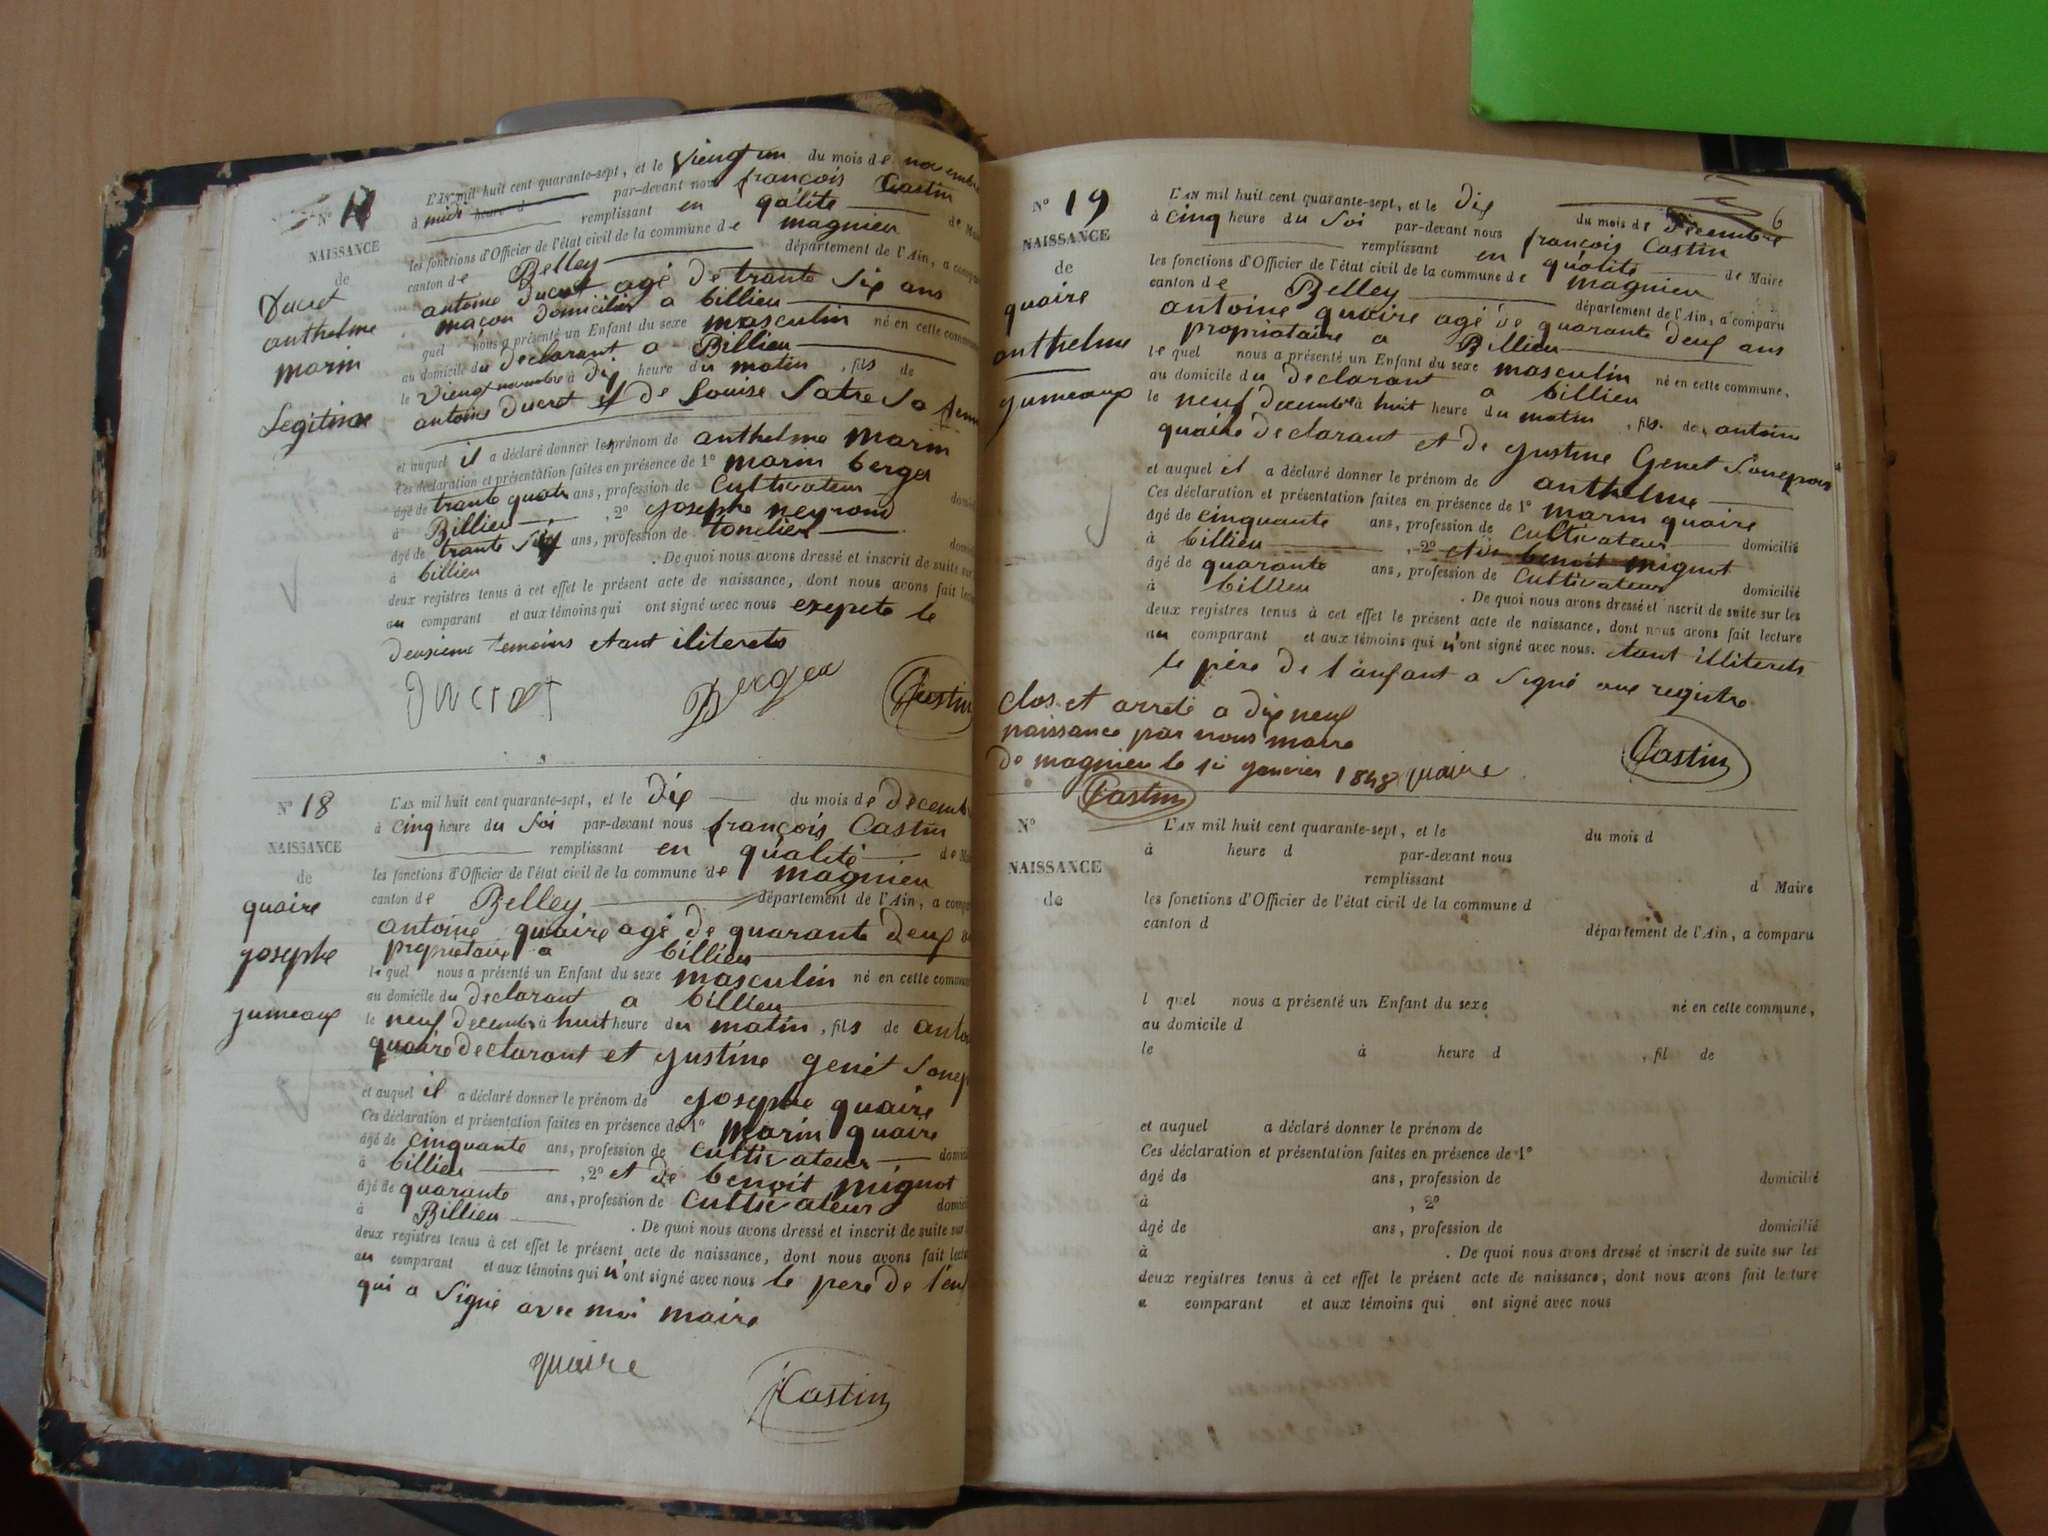 N° 17
NAISSANCE
de
Ducret
anthelme
marin
Legitime
L'AN mil huit cent quarante-sept, et le viengt un du mois de novembre
à midi heure d par-devant nous françois Castin
remplissant en qalite de Mai
les fonctions d'Officier de l'état civil de la commune de magnieu
canton de Belley département de l'Ain, a compa
antoine Ducret agé de trante Six ans
maçon domicilier a billieu
quel nous a présenté un Enfant du sexe masculin né en cette commune
au domicile du declarant a Billieu
le viengt novembre à dix heure du matin, fils de
antoine Ducret et de Louise Satre Sa femm
et auquel il a déclaré donner les prénom de anthelme marin
Ces déclaration et présentation faites en présence de 1° marin berger
âgé de trante quatr ans, profession de Cultivateur domi
à Billieu, 2° josephe neyroud
âgé de trante Sept ans, profession de tonelier domi
à billieu. De quoi nous avons dressé et inscrit de suite sur
deux registres tenus à cet effet le présent acte de naissance, dont nous avons fait lectu
au comparant et aux témoins qui ont signé avec nous exepete le
deusieme temoins etant iliterets
Ducret Berger Castin
N° 18
NAISSANCE
de
quaire
josephe
jumeaux
L'AN mil huit cent quarante-sept, et le dix du mois de decemb
à cinq heure du Soi par-devant nous françois Castin
remplissant en qualité de M
les fonctions d'Officier de l'état civil de la commune de magnieu
canton de Belley département de l'Ain, a compa
antoine quaire agé de quarante deux
propriétaire a billieu
le quel nous a présenté un Enfant du sexe masculin né en cette commun
au domicile du declarant a billieu
le neuf decembre à huit heure du matin, fils de anto
quaire declarant et justine genet Sonep
et auquel il a déclaré donner le prénom de josephe quaire
Ces déclaration et présentation faites en présence de 1° marin quaire
âgé de cinquante ans, profession de cultivateur domici
à billieu, 2° et de benoit mignot
âgé de quarante ans, profession de cultivateur domici
à Billieu. De quoi nous avons dressé et inscrit de suite sur
deux registres tenus à cet effet le présent acte de naissance, dont nous avons fait lectu
au comparant et aux témoins qui n'ont signé avec nous le pere de l'en
qui a Signé avec moi maire
quaire
Castin
6
N° 19
NAISSANCE
de
quaire
anthelme
jumeaux
L'AN mil huit cent quarante-sept, et le dix du mois de Decembre
à cinq heure du Soi par-devant nous françois Castin
remplissant en qualité de Maire
les fonctions d'Officier de l'état civil de la commune de magnieu
canton de Belley département de l'Ain, a comparu
antoine quaire agé de quarante deux ans
propriataire a Billieu
le quel nous a présenté un Enfant du sexe masculin né en cette commune,
au domicile du declarant a billieu
le neuf decembre à huit heure du matin, fils de antoine
quaire declarant et de justine Genet
et auquel il a déclaré donner le prénom de anthelme
Ces déclaration et présentation faites en présence de 1° marin quaire
âgé de cinquante ans, profession de cultivateur domicilié
à billieu, 2° benoit mignot
âgé de quarante ans, profession de cultivateur domicilié
à billieu. De quoi nous avons dressé et inscrit de suite sur les
deux registres tenus à cet effet le présent acte de naissance, dont nous avons fait lecture
au comparant et aux témoins qui n'ont signé avec nous. etant illiterets
le père de l'anfant a Signé aux registre
Clos et arreté a dix neuf
naissance par nous maire
de magnieu le 1er janvier 1848 quaire
Castin
Castin
N°
NAISSANCE
de
L'AN mil huit cent quarante-sept, et le du mois d
à heure d par-devant nous
remplissant d Maire
les fonctions d'Officier de l'état civil de la commune d
canton d département de l'Ain, a comparu
l quel nous a présenté un Enfant du sexe né en cette commune,
au domicile d
le à heure d , fil de
et auquel a déclaré donner le prénom de
Ces déclaration et présentation faites en présence de 1°
âgé de ans, profession de domicilié
à , 2°
âgé de ans, profession de domicilié
à . De quoi nous avons dressé et inscrit de suite sur les
deux registres tenus à cet effet le présent acte de naissance, dont nous avons fait lecture
a comparant et aux témoins qui ont signé avec nous